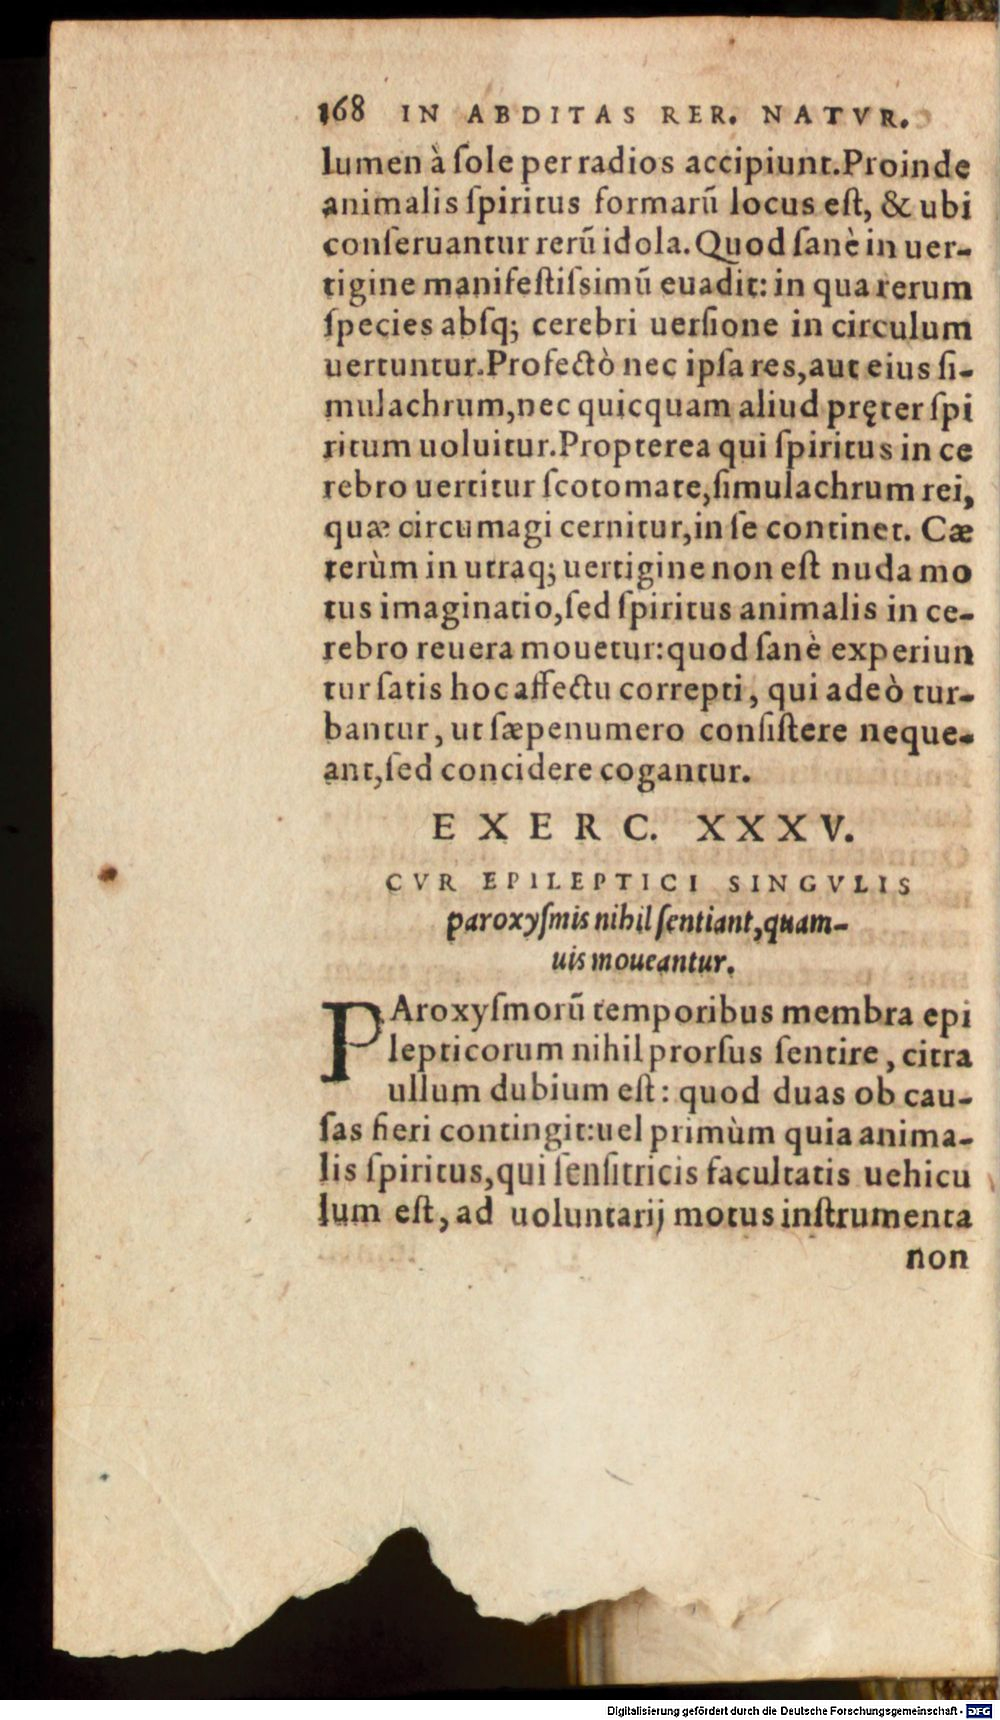 168 IN ABDITAS RER. NATVR.
lumen à ſole per radios accipiunt. Proinde
animalis ſpiritus formarū locus eſt, & ubi
conſeruantur rerū idola. Quod ſanè in uer-
tigine manifeſtiſsimū euadit: in qua rerum
ſpecies abſq; cerebri uerſione in circulum
uertuntur. Profectò nec ipſa res, aut eius ſi-
mulachrum, nec quicquam aliud pręter ſpi
ritum uoluitur. Propterea qui ſpiritus in ce
rebro uertitur ſcotomate, ſimulachrum rei,
quæ circumagi cernitur, in ſe continet. Cæ
terùm in utraq; uertigine non eſt nuda mo
tus imaginatio, ſed ſpiritus animalis in ce-
rebro reuera mouetur: quod ſanè experiun
tur ſatis hoc affectu correpti, qui adeò tur-
bantur, ut ſæpenumero conſiſtere neque-
ant, ſed concidere cogantur.
EXERC. XXXV.
CVR EPILEPTICI SINGVLIS
paroxyſmis nihil ſentiant, quam-
uis moueantur.
PAroxyſmorū temporibus membra epi
lepticorum nihil prorſus ſentire, citra
ullum dubium eſt: quod duas ob cau-
ſas fieri contingit: uel primùm quia anima-
lis ſpiritus, qui ſenſitricis facultatis uehicu
lum eſt, ad uoluntarij motus inſtrumenta
non
Digitalisierung gefördert durch die Deutsche Forschungsgemeinschaft - DFG